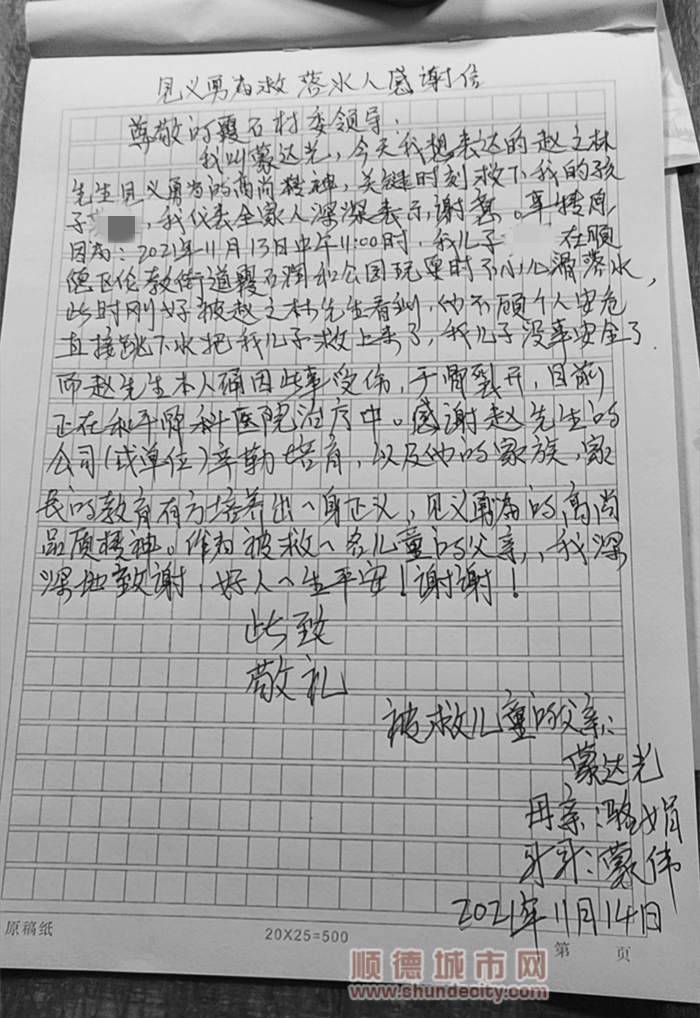 见义勇为救落水人感谢信
尊敬的霞石村委领导：
我叫蒙达光，今天我想表达的赵之林
先生见义勇为的高尚精神，关键时刻救下我的孩
子，我代表全家人深深表示谢意。事情原
因为：2021年11月13日中午11:00时，我儿子 在顺
德区伦教街道霞石润和公园玩耍时不小心滑落水，
此时刚好被赵之林先生看到，他不顾个人安危
直接跳下水把我儿子救上来了，我儿子没事安全了
而赵先生本人确因此事受伤，手骨裂开，目前
正在和平骨科医院治疗中。感谢赵先生的
公司(或单位)辛勤培育，以及他的家族、家
长的教育有方培养出一身正义，见义勇为的高尚
品质精神。作为被救一名儿童的父亲，，我深
深地致谢，好人一生平安！谢谢！
此致
敬礼
被救儿童的父亲：
蒙达光
母亲：骆娟
哥哥：蒙伟
2021年11月14日
原稿纸
20X25=500
第 页
顺德城市网
www.shundecity.com